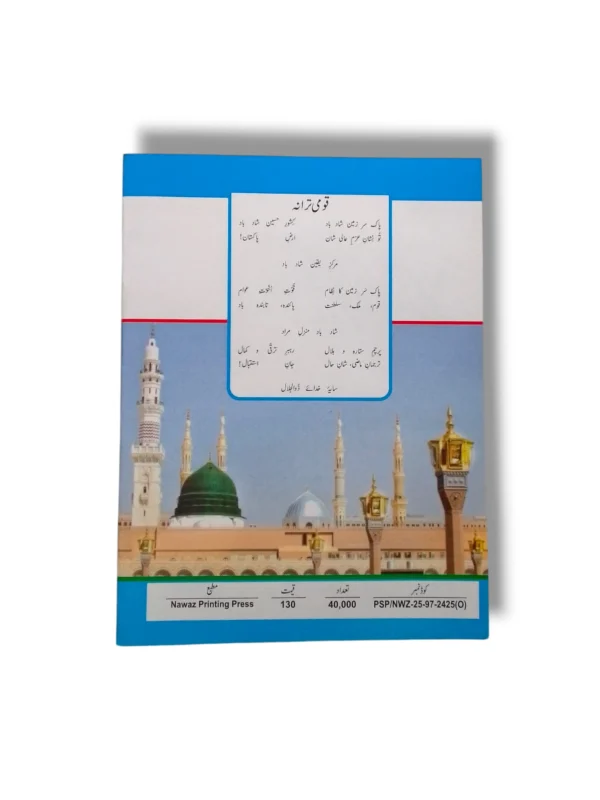 قومی ترانہ
پاک سر زمین شاد باد کشور حسین شاد باد
تُو نشانِ عزمِ عالی شان ارضِ پاکستان!
مرکزِ یقین شاد باد
پاک سر زمین کا نظام قوّتِ اخوّتِ عوام
قوم، ملک، سلطنت پائندہ، تابندہ باد
شاد باد منزلِ مراد
پرچمِ ستارہ و ہلال رہبرِ ترقّی و کمال
ترجمانِ ماضی، شانِ حال جانِ استقبال!
سایۂ خدائے ذوالجلال
کوڈ نمبر تعداد قیمت مطبع
PSP/NWZ-25-97-2425(O) 40,000 130 Nawaz Printing Press